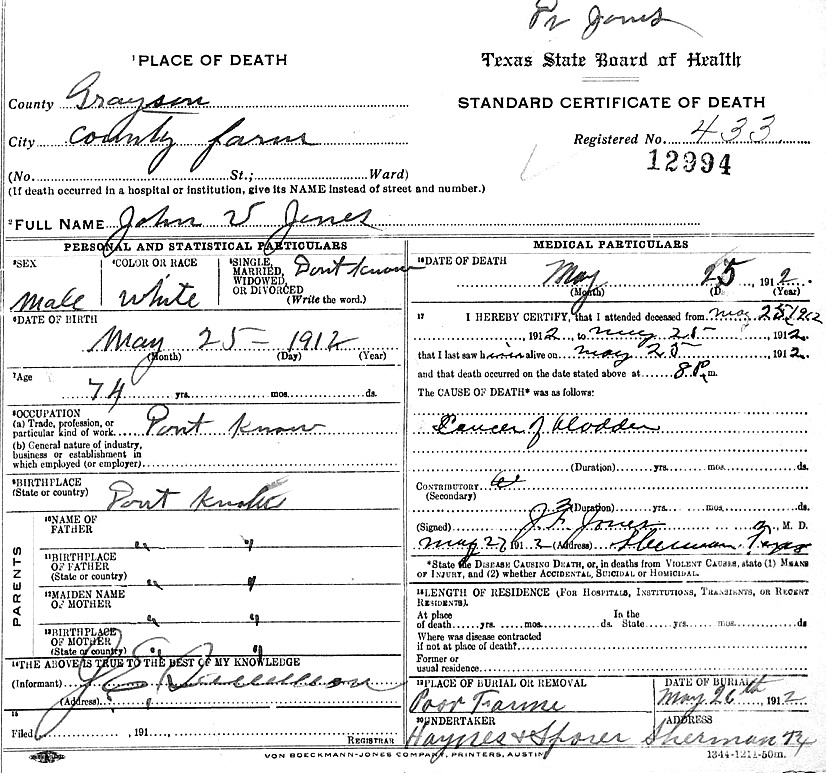 Dr Jones
¹PLACE OF DEATH
Texas State Board of Health
STANDARD CERTIFICATE OF DEATH
County Grayson
City County farm
Registered No. 433
12994
(No. St.; Ward)
(If death occurred in a hospital or institution, give its NAME instead of street and number.)
²FULL NAME John V Jones
PERSONAL AND STATISTICAL PARTICULARS
³SEX
Male
⁴COLOR OR RACE
White
⁵SINGLE, MARRIED, WIDOWED, OR DIVORCED
Dont know
(Write the word.)
⁶DATE OF BIRTH
May 25 - 1912
(Month) (Day) (Year)
⁷Age
74 yrs. mos. ds.
⁸OCCUPATION
(a) Trade, profession, or
particular kind of work Dont Know
(b) General nature of industry,
business or establishment in
which employed (or employer)
⁹BIRTHPLACE
(State or country) Dont Know
PARENTS
¹⁰NAME OF
FATHER " "
¹¹BIRTHPLACE
OF FATHER
(State or country) " "
¹²MAIDEN NAME
OF MOTHER " "
¹³BIRTHPLACE
OF MOTHER
(State or country) " "
¹⁴THE ABOVE IS TRUE TO THE BEST OF MY KNOWLEDGE
(Informant)
(Address)
¹⁵
Filed , 191
REGISTRAR
MEDICAL PARTICULARS
¹⁶DATE OF DEATH
May 25, 1912
(Month) (Day) (Year)
¹⁷ I HEREBY CERTIFY, that I attended deceased from May 25 1912
1912 to May 25 1912
that I last saw him alive on May 25 1912
and that death occurred on the date stated above at 8 P. m.
The CAUSE OF DEATH* was as follows:
Cancer of bladder
(Duration) yrs. mos. ds.
CONTRIBUTORY
(Secondary)
(Duration) yrs. mos. ds.
(Signed) Jones M. D.
May 27 1912 (Address) Sherman Texas
*State the DISEASE CAUSING DEATH, or, in deaths from VIOLENT CAUSES, state (1) MEANS
OF INJURY, and (2) whether ACCIDENTAL, SUICIDAL or HOMICIDAL.
¹⁸LENGTH OF RESIDENCE (FOR HOSPITALS, INSTITUTIONS, TRANSIENTS, OR RECENT
RESIDENTS).
At place In the
of death yrs. mos. ds. State yrs. mos. ds.
Where was disease contracted
if not at place of death?
Former or
usual residence
¹⁹PLACE OF BURIAL OR REMOVAL
Poor Farme
DATE OF BURIAL
May 26th, 1912
²⁰UNDERTAKER
Haynes & Sporer
ADDRESS
Sherman Tx
VON BOECKMANN-JONES COMPANY, PRINTERS, AUSTIN
1344-1211-50m.